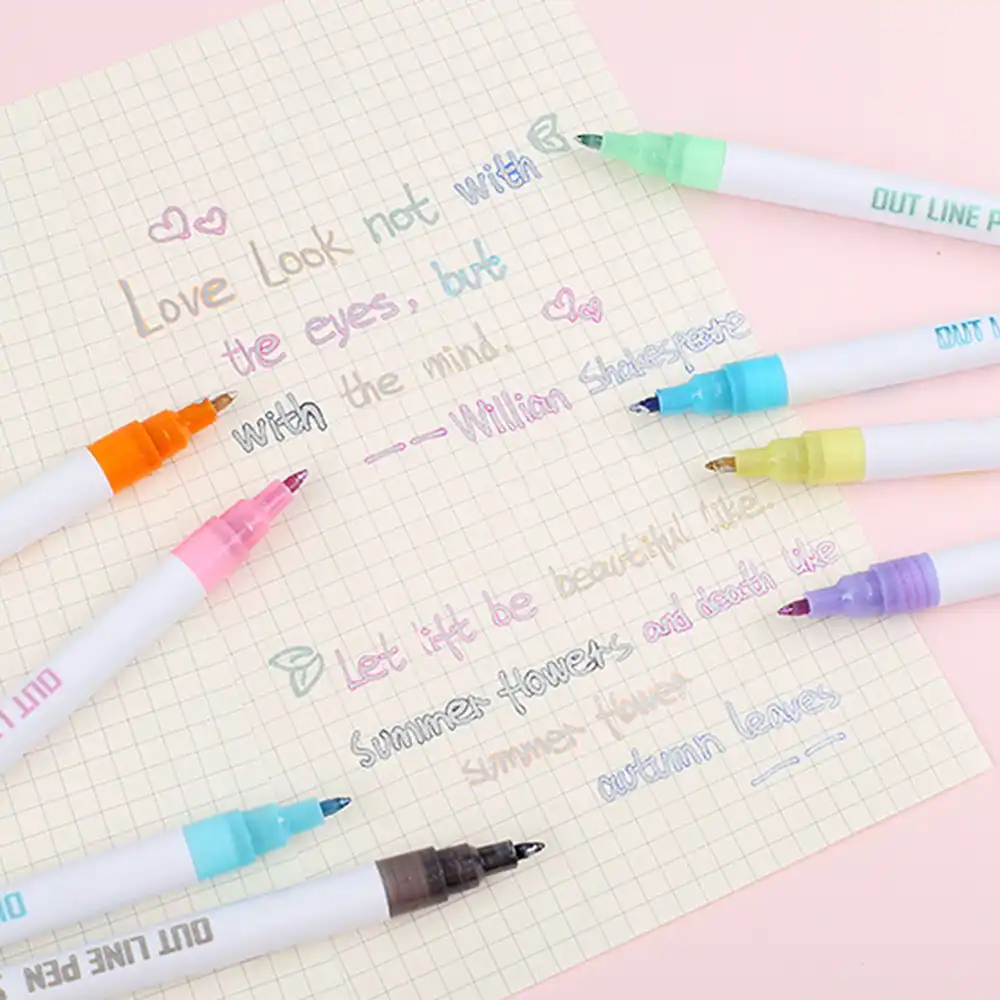 Love Look not with
the eyes, but
with the mind.
—— Willian Shakespeare
Let lift be beautiful like.
summer flowers and death like
summer flower
autumn leaves
——
OUT LINE P
OUT L
OUT L
OUT LINE PEN